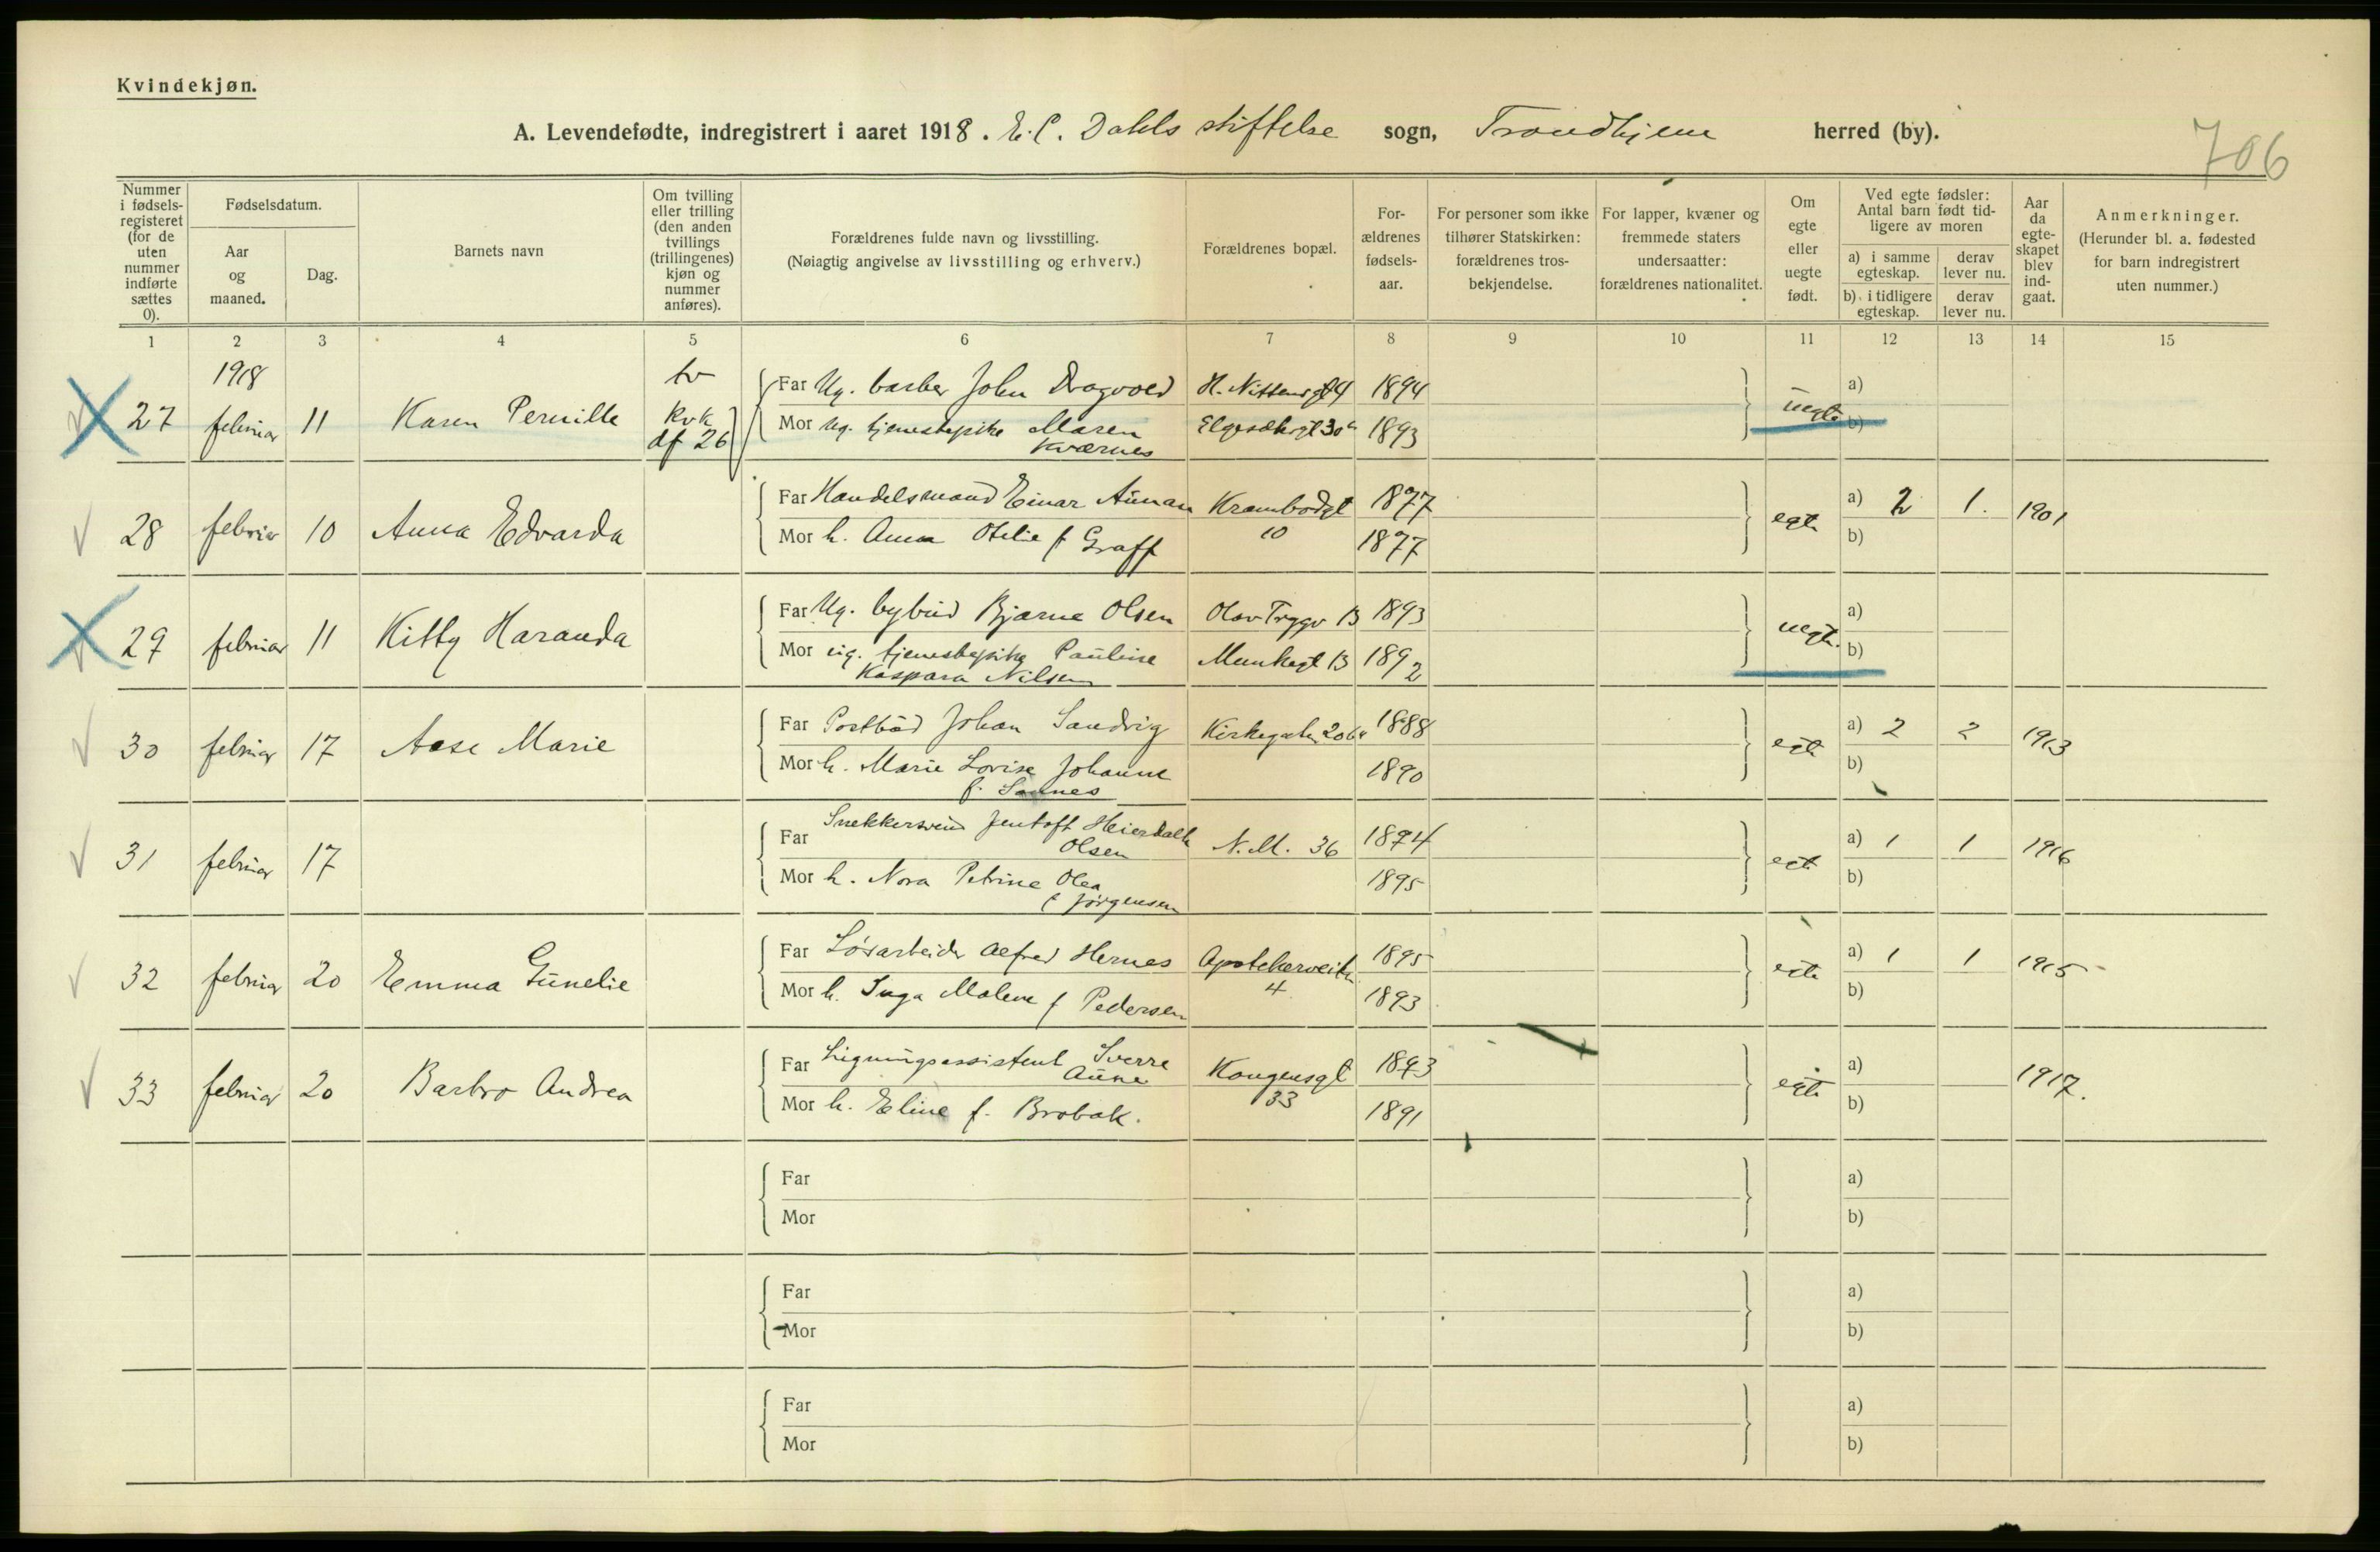 Kvindekjøn.
A. Levendefødte, indregistrert i aaret 1918. E. C. Dahls stiftelse sogn, Trondhjem herred (by).
706
Nummer i fødsels-registeret (for de uten nummer indførte sættes 0).
Fødselsdatum.
Aar og maaned.
Dag.
Barnets navn
Om tvilling eller trilling (den anden tvillings (trillingenes) kjøn og nummer anføres).
Forældrenes fulde navn og livsstilling.
(Nøiagtig angivelse av livsstilling og erhverv.)
Forældrenes bopæl.
For-ældrenes fødsels-aar.
For personer som ikke tilhører Statskirken: forældrenes tros-bekjendelse.
For lapper, kvæner og fremmede staters undersaatter: forældrenes nationalitet.
Om egte eller uegte født.
Ved egte fødsler: Antal barn født tid-ligere av moren
a) i samme egteskap.
derav lever nu.
b) i tidligere egteskap.
derav lever nu.
Aar da egte-skapet blev ind-gaat.
Anmerkninger.
(Herunder bl. a. fødested for barn indregistrert uten nummer.)
1 2 3 4 5 6 7 8 9 10 11 12 13 14 15
1918
27 februar 11 Karen Pernille tv kvk af 26
Far Ug. barber John Dragvold 1894
Mor ug. tjenestepike Maren Kværnes 1893
uegte a) b)
28 februar 10 Anna Edvarda
Far Handelsmand Einar Aunan Krambodgt 10 1877
Mor h. Anna Otelie f Graff 1877
egte a) 2 1. 1901
b)
29 februar 11 Kitty Haranda
Far Ug. bybud Bjarne Olsen Olav Trygv 13 1893
Mor ug. tjenestepike Pauline Kaspara Nilsen Munkegt 13 1892
uegte. a) b)
30 februar 17 Aase Marie
Far Postbud Johan Sandvig 1888
Mor h. Marie Lovise Johanne f. Sannes 1890
egte a) 2 2 1913
b)
31 februar 17
Far Snekkersvend Jentoft Olsen N.M. 36 1894
Mor h. Nora Petrine Olea f Jörgensen 1895
egte a) 1 1 1916
b)
32 februar 20 Emma Gunelie
Far Lösarbeider Alfred Hernes Apotekerveita 4 1895
Mor h. Inga Malene f Pedersen 1893
egte a) 1 1 1915
b)
33 februar 20 Barbro Andrea
Far Ligningsassistent Sverre Aune Kongensgt 33 1893
Mor h. Eline f. Brobak. 1891
egte a) b) 1917.
Far a)
Mor b)
Far a)
Mor b)
Far a)
Mor b)